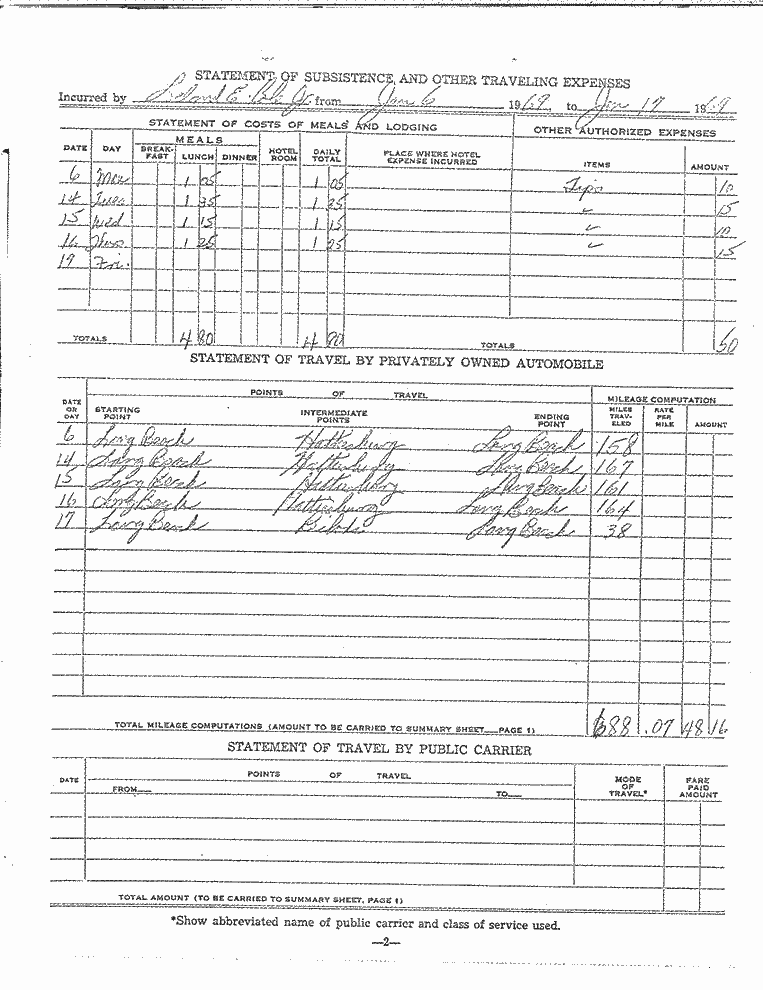 STATEMENT OF SUBSISTENCE AND OTHER TRAVELING EXPENSES
Incurred by Leland E. Cole Jr from Jan 6 1969 to Jan 17 1969
STATEMENT OF COSTS OF MEALS AND LODGING OTHER AUTHORIZED EXPENSES
DATE DAY MEALS BREAK-FAST LUNCH DINNER HOTEL ROOM DAILY TOTAL PLACE WHERE HOTEL EXPENSE INCURRED ITEMS AMOUNT
6 Mon 1 05 1 05 Tips 10
14 Tues 1 35 1 35 " 15
15 Wed 1 15 1 15 " 10
16 Thurs 1 25 1 25 " 15
Fri.
TOTALS 4 80 4 80 TOTALS 50
STATEMENT OF TRAVEL BY PRIVATELY OWNED AUTOMOBILE
POINTS OF TRAVEL MILEAGE COMPUTATION
DATE OR DAY STARTING POINT INTERMEDIATE POINTS ENDING POINT MILES TRAV-ELED RATE PER MILE AMOUNT
6 Long Beach Hattiesburg Long Beach 158
14 Long Beach Hattiesburg Long Beach 167
15 Long Beach Hattiesburg Long Beach 161
16 Long Beach Hattiesburg Long Beach 164
17 Long Beach Long Beach 38
TOTAL MILEAGE COMPUTATIONS (AMOUNT TO BE CARRIED TO SUMMARY SHEET PAGE 1) 688 .07 48 16
STATEMENT OF TRAVEL BY PUBLIC CARRIER
DATE POINTS OF TRAVEL MODE OF TRAVEL* FARE PAID AMOUNT
FROM TO
TOTAL AMOUNT (TO BE CARRIED TO SUMMARY SHEET, PAGE 1)
*Show abbreviated name of public carrier and class of service used.
—2—